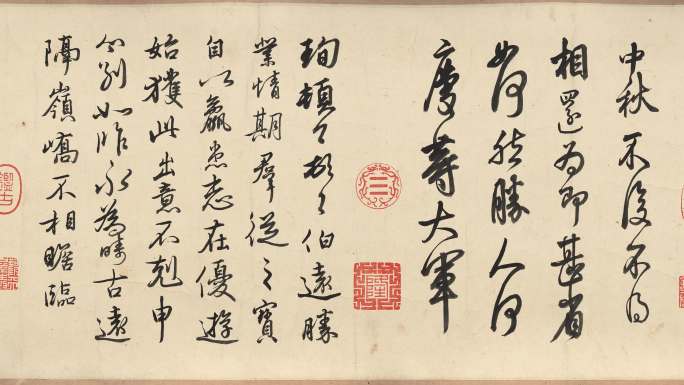 中秋不復不得
相還為即甚省
如何然勝人何
慶等大軍
珣頓〻首〻伯遠勝
業情期羣從之寶
自以羸患志在優遊
始獲此出意不剋申
分別如昨永為疇古遠
隔嶺嶠不相瞻臨